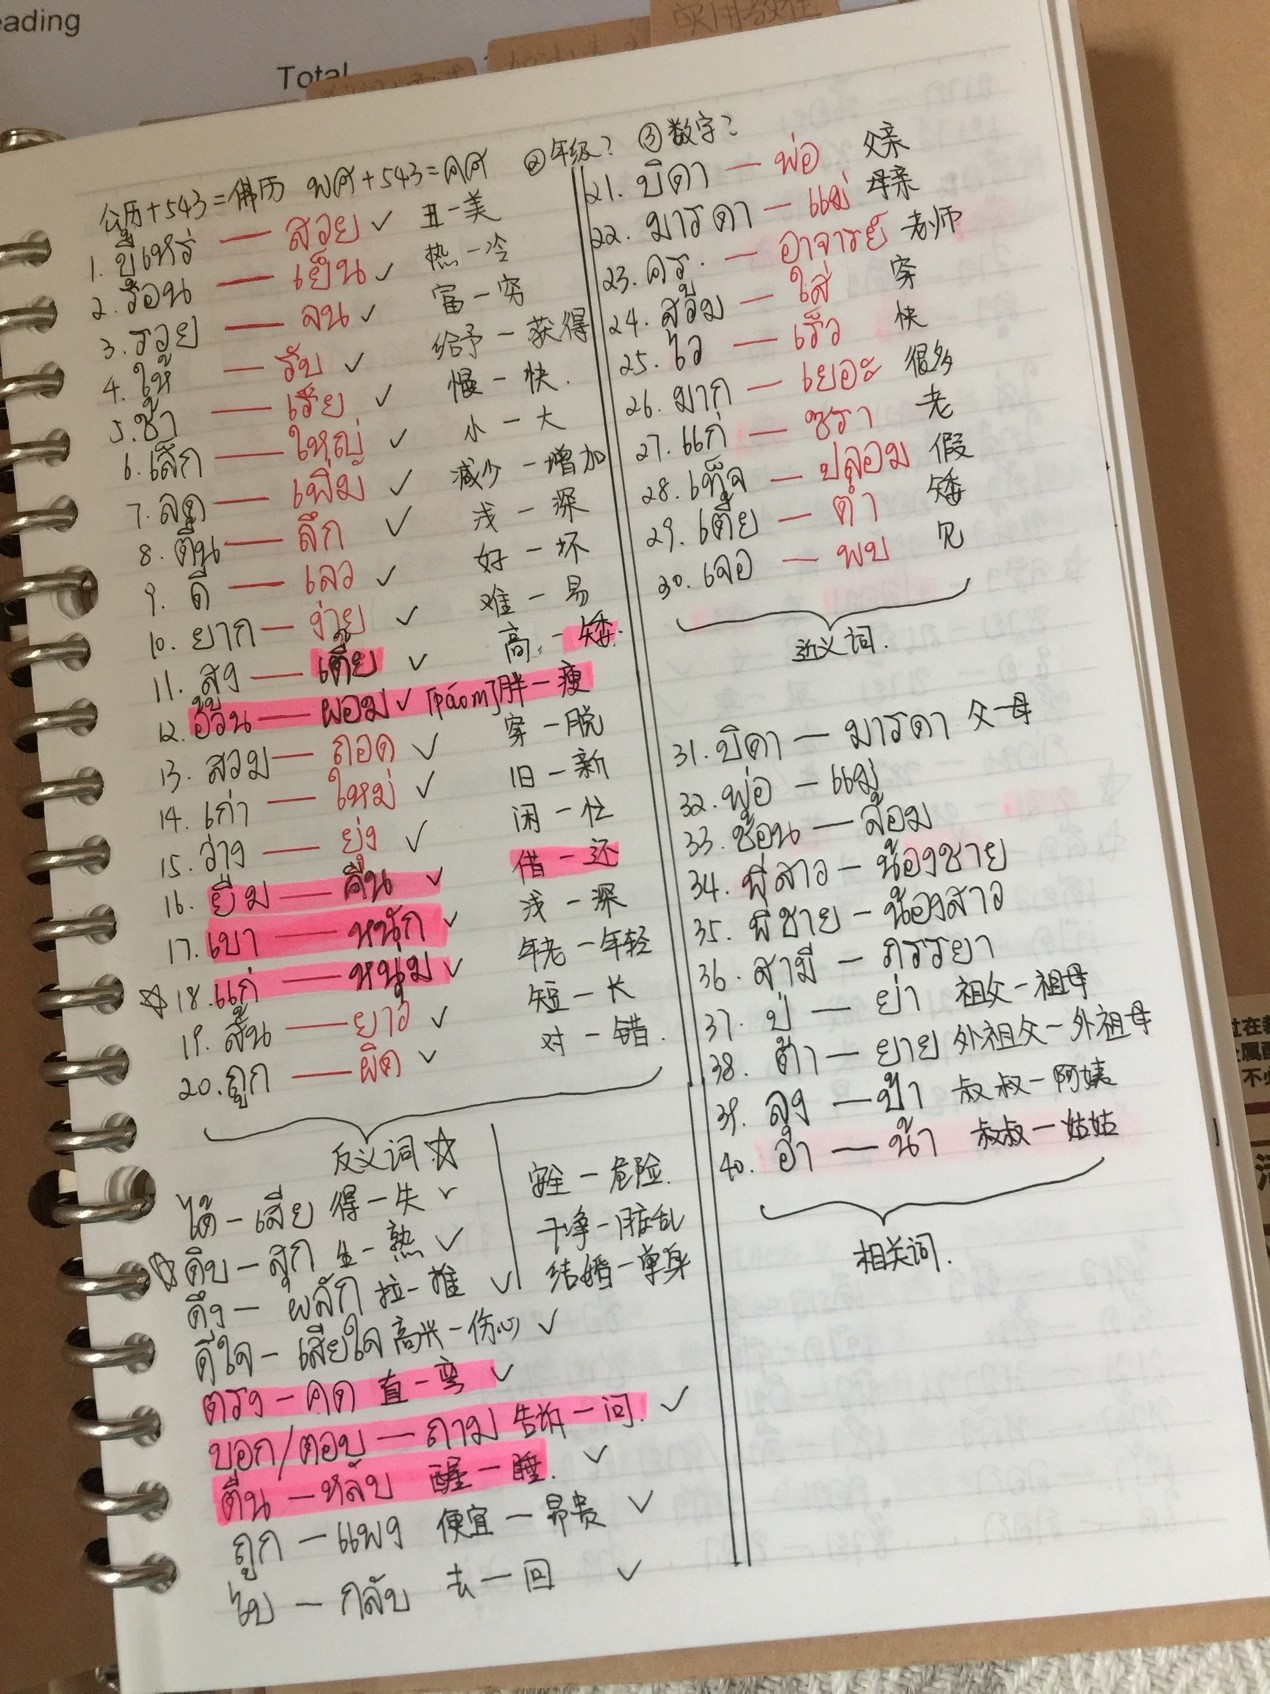 eading
Total
实用教程
公历+543=佛历 พศ+543=คศ ②年级? ③数字?
1. ขี้เหร่ — สวย ✓ 丑-美
2. ร้อน — เย็น ✓ 热-冷
3. รวย — จน ✓ 富-穷
4. ให้ — รับ ✓ 给予-获得
5. ช้า — เร็ว ✓ 慢-快.
6. เล็ก — ใหญ่ ✓ 小-大
7. ลด — เพิ่ม ✓ 减少-增加
8. ตื้น — ลึก ✓ 浅-深
9. ดี — เลว ✓ 好-坏
10. ยาก — ง่าย ✓ 难-易
11. สูง — เตี้ย ✓ 高-矮.
12. อ้วน — ผอม ✓ [pǎom] 胖-瘦
13. สวม — ถอด ✓ 穿-脱
14. เก่า — ใหม่ ✓ 旧-新
15. ว่าง — ยุ่ง ✓ 闲-忙
16. ยืม — คืน ✓ 借-还
17. เบา — หนัก ✓ 浅-深
☆18. แก่ — หนุ่ม ✓ 年老-年轻
19. สั้น — ยาว ✓ 短-长
20. ถูก — ผิด ✓ 对-错.
反义词☆
ได้ – เสีย 得-失 ✓
☆ดิบ – สุก 生-熟 ✓
ดึง – ผลัก 拉-推 ✓
ดีใจ – เสียใจ 高兴-伤心 ✓
ตรง – คด 直-弯 ✓
บอก/ตอบ – ถาม 告诉-问. ✓
ตื่น – หลับ 醒-睡. ✓
ถูก – แพง 便宜-昂贵 ✓
ไป – กลับ 去-回 ✓
安全-危险.
干净-脏乱
结婚-单身
21. บิดา — พ่อ 父亲
22. มารดา — แม่ 母亲
23. ครู. — อาจารย์ 老师
24. สวม — ใส่ 穿
25. ไว — เร็ว 快
26. มาก — เยอะ 很多
27. แก่ — ชรา 老
28. เท็จ — ปลอม 假
29. เตี้ย — ต่ำ 矮
30. เจอ — พบ 见
近义词.
31. บิดา – มารดา 父-母
32. พ่อ – แม่
33. ช้อน – ส้อม
34. พี่สาว – น้องชาย
35. พี่ชาย – น้องสาว
36. สามี – ภรรยา
37. ปู่ – ย่า 祖父-祖母
38. ตา – ยาย 外祖父-外祖母
39. ลุง – ป้า 叔叔-阿姨
40. อา – น้า 叔叔-姑姑
相关词.